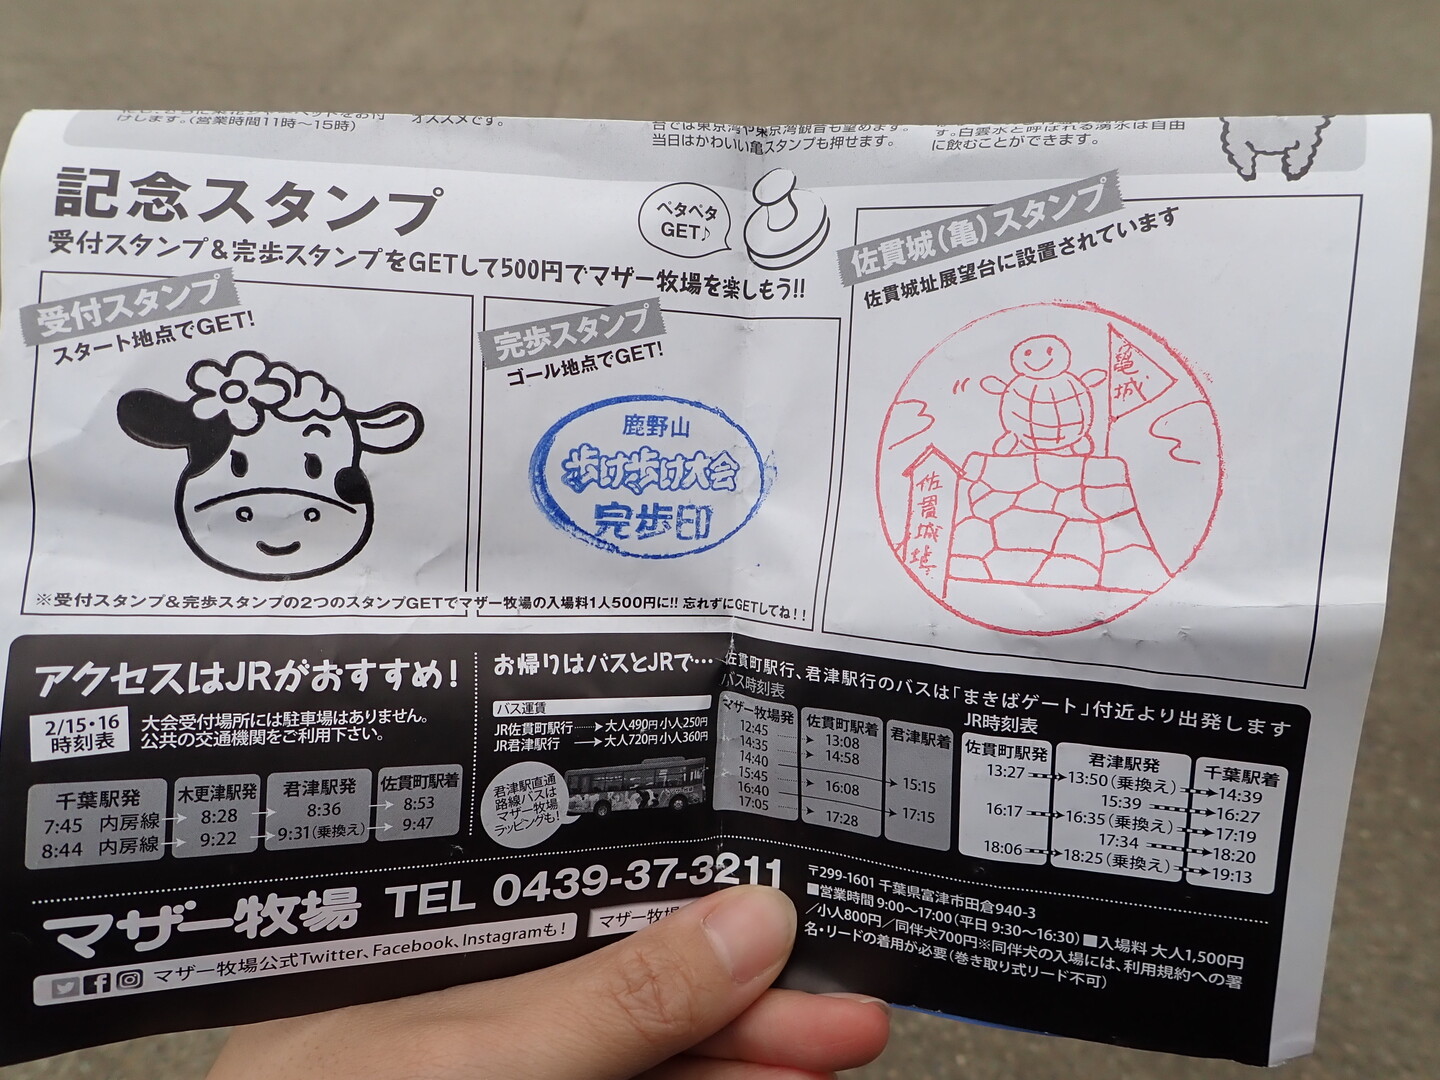 けします。(営業時間11時～15時)
オススメです。
台では東京湾や東京湾観音も望めます。
当日はかわいい亀スタンプも押せます。
す。白雲水と呼ばれる湧水は自由
に飲むことができます。
記念スタンプ
受付スタンプ&完歩スタンプをGETして500円でマザー牧場を楽しもう!!
ペタペタ
GET♪
受付スタンプ
スタート地点でGET!
完歩スタンプ
ゴール地点でGET!
鹿野山
歩け歩け大会
完歩印
佐貫城(亀)スタンプ
佐貫城址展望台に設置されています
亀城
佐貫城址
※受付スタンプ&完歩スタンプの2つのスタンプGETでマザー牧場の入場料1人500円に!! 忘れずにGETしてね!!
アクセスはJRがおすすめ!
2/15・16
時刻表
大会受付場所には駐車場はありません。
公共の交通機関をご利用下さい。
千葉駅発 木更津駅発 君津駅発 佐貫町駅着
7:45 内房線 → 8:28 → 8:36 → 8:53
8:44 内房線 → 9:22 → 9:31(乗換え) → 9:47
お帰りはバスとJRで…
バス運賃
JR佐貫町駅行 → 大人490円 小人250円
JR君津駅行 → 大人720円 小人360円
君津駅直通
路線バスは
マザー牧場
ラッピングも!
佐貫町駅行、君津駅行のバスは「まきばゲート」付近より出発します
バス時刻表
マザー牧場発 佐貫町駅着 君津駅着
12:45 → 13:08
14:35 → 14:58
14:40 → 15:15
15:45 → 16:08
16:40 → 17:15
17:05 → 17:28
JR時刻表
佐貫町駅発 君津駅発 千葉駅着
13:27 → 13:50(乗換え) → 14:39
15:39 → 16:27
16:17 → 16:35(乗換え) → 17:19
17:34 → 18:20
18:06 → 18:25(乗換え) → 19:13
マザー牧場 TEL 0439-37-3211
マザー牧場公式Twitter、Facebook、Instagramも!
マザー牧場
〒299-1601 千葉県富津市田倉940-3
■営業時間 9:00～17:00(平日 9:30～16:30) ■入場料 大人1,500円
/小人800円/同伴犬700円※同伴犬の入場には、利用規約への署
名・リードの着用が必要(巻き取り式リード不可)